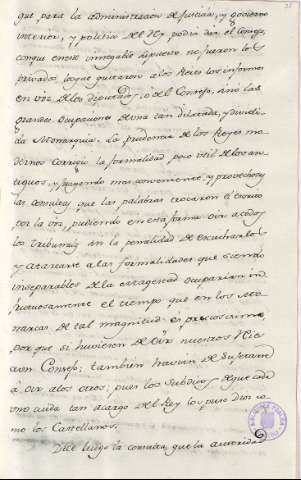 que para la administracion de Justicia, y govierno
interior, y politica del Rey podia dar el Consejo,
conque es cosa innegable supuesto no fueron los
privados los que quitaron alos Reyes los informes
en voz de los diputados, ó del Consejo, sino las
grandes ocupaciones de una tan dilatada, y dividi-
da Monarquia. La prudencia de los Reyes mo-
dernos corrigio la formalidad poco util de los an-
tiguos, y juzgando mas conveniente, y provechoso
las consultas que las palabras trocaron el escrito
por la voz, pudiendo en esta forma oir a todos
los Tribunales sin la penalidad de escucharlos
y atararse a las formalidades que siendo
inseparables de la Magestad ocuparian in
fructuosamente el tiempo que en los Mo-
narcas de tal magnitud es preciosissimo
por que si huvieran de oir nuestros Reies
aun Consejo; tambien havian de sujetarse
a oir alos otros; pues los Subditos de que cada
uno cuida tan acargo del Rey los puso Dios co-
mo los Castellanos.
Dice luego la consulta, que la autoridad